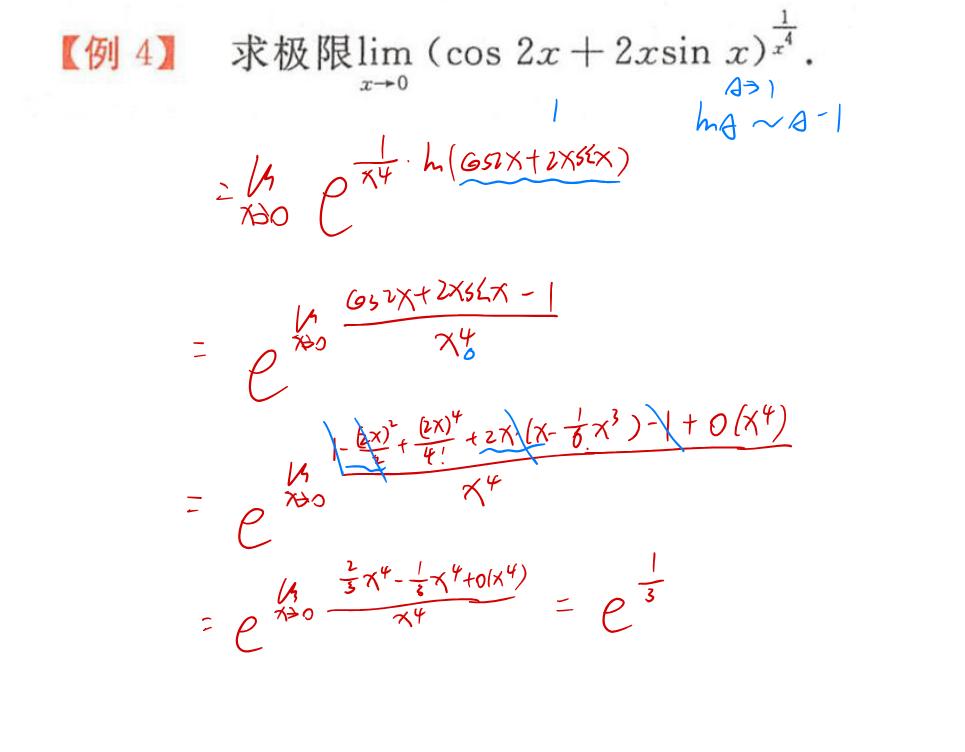 【例 4】 求极限lim（cos 2x＋2xsin x)^{1/x^4}.
x→0
A→1
lnA ~ A-1
1
= lim_{x→0} e^{1/x^4 · ln(cos2x+2xsinx)}
= e^{lim_{x→0} (cos2x+2xsinx-1)/x^4}
0
= e^{lim_{x→0} (1-(2x)^2/2+(2x)^4/4!+2x·(x-1/6x^3)-1+o(x^4))/x^4}
= e^{lim_{x→0} (2/3x^4-1/3x^4+o(x^4))/x^4} = e^{1/3}